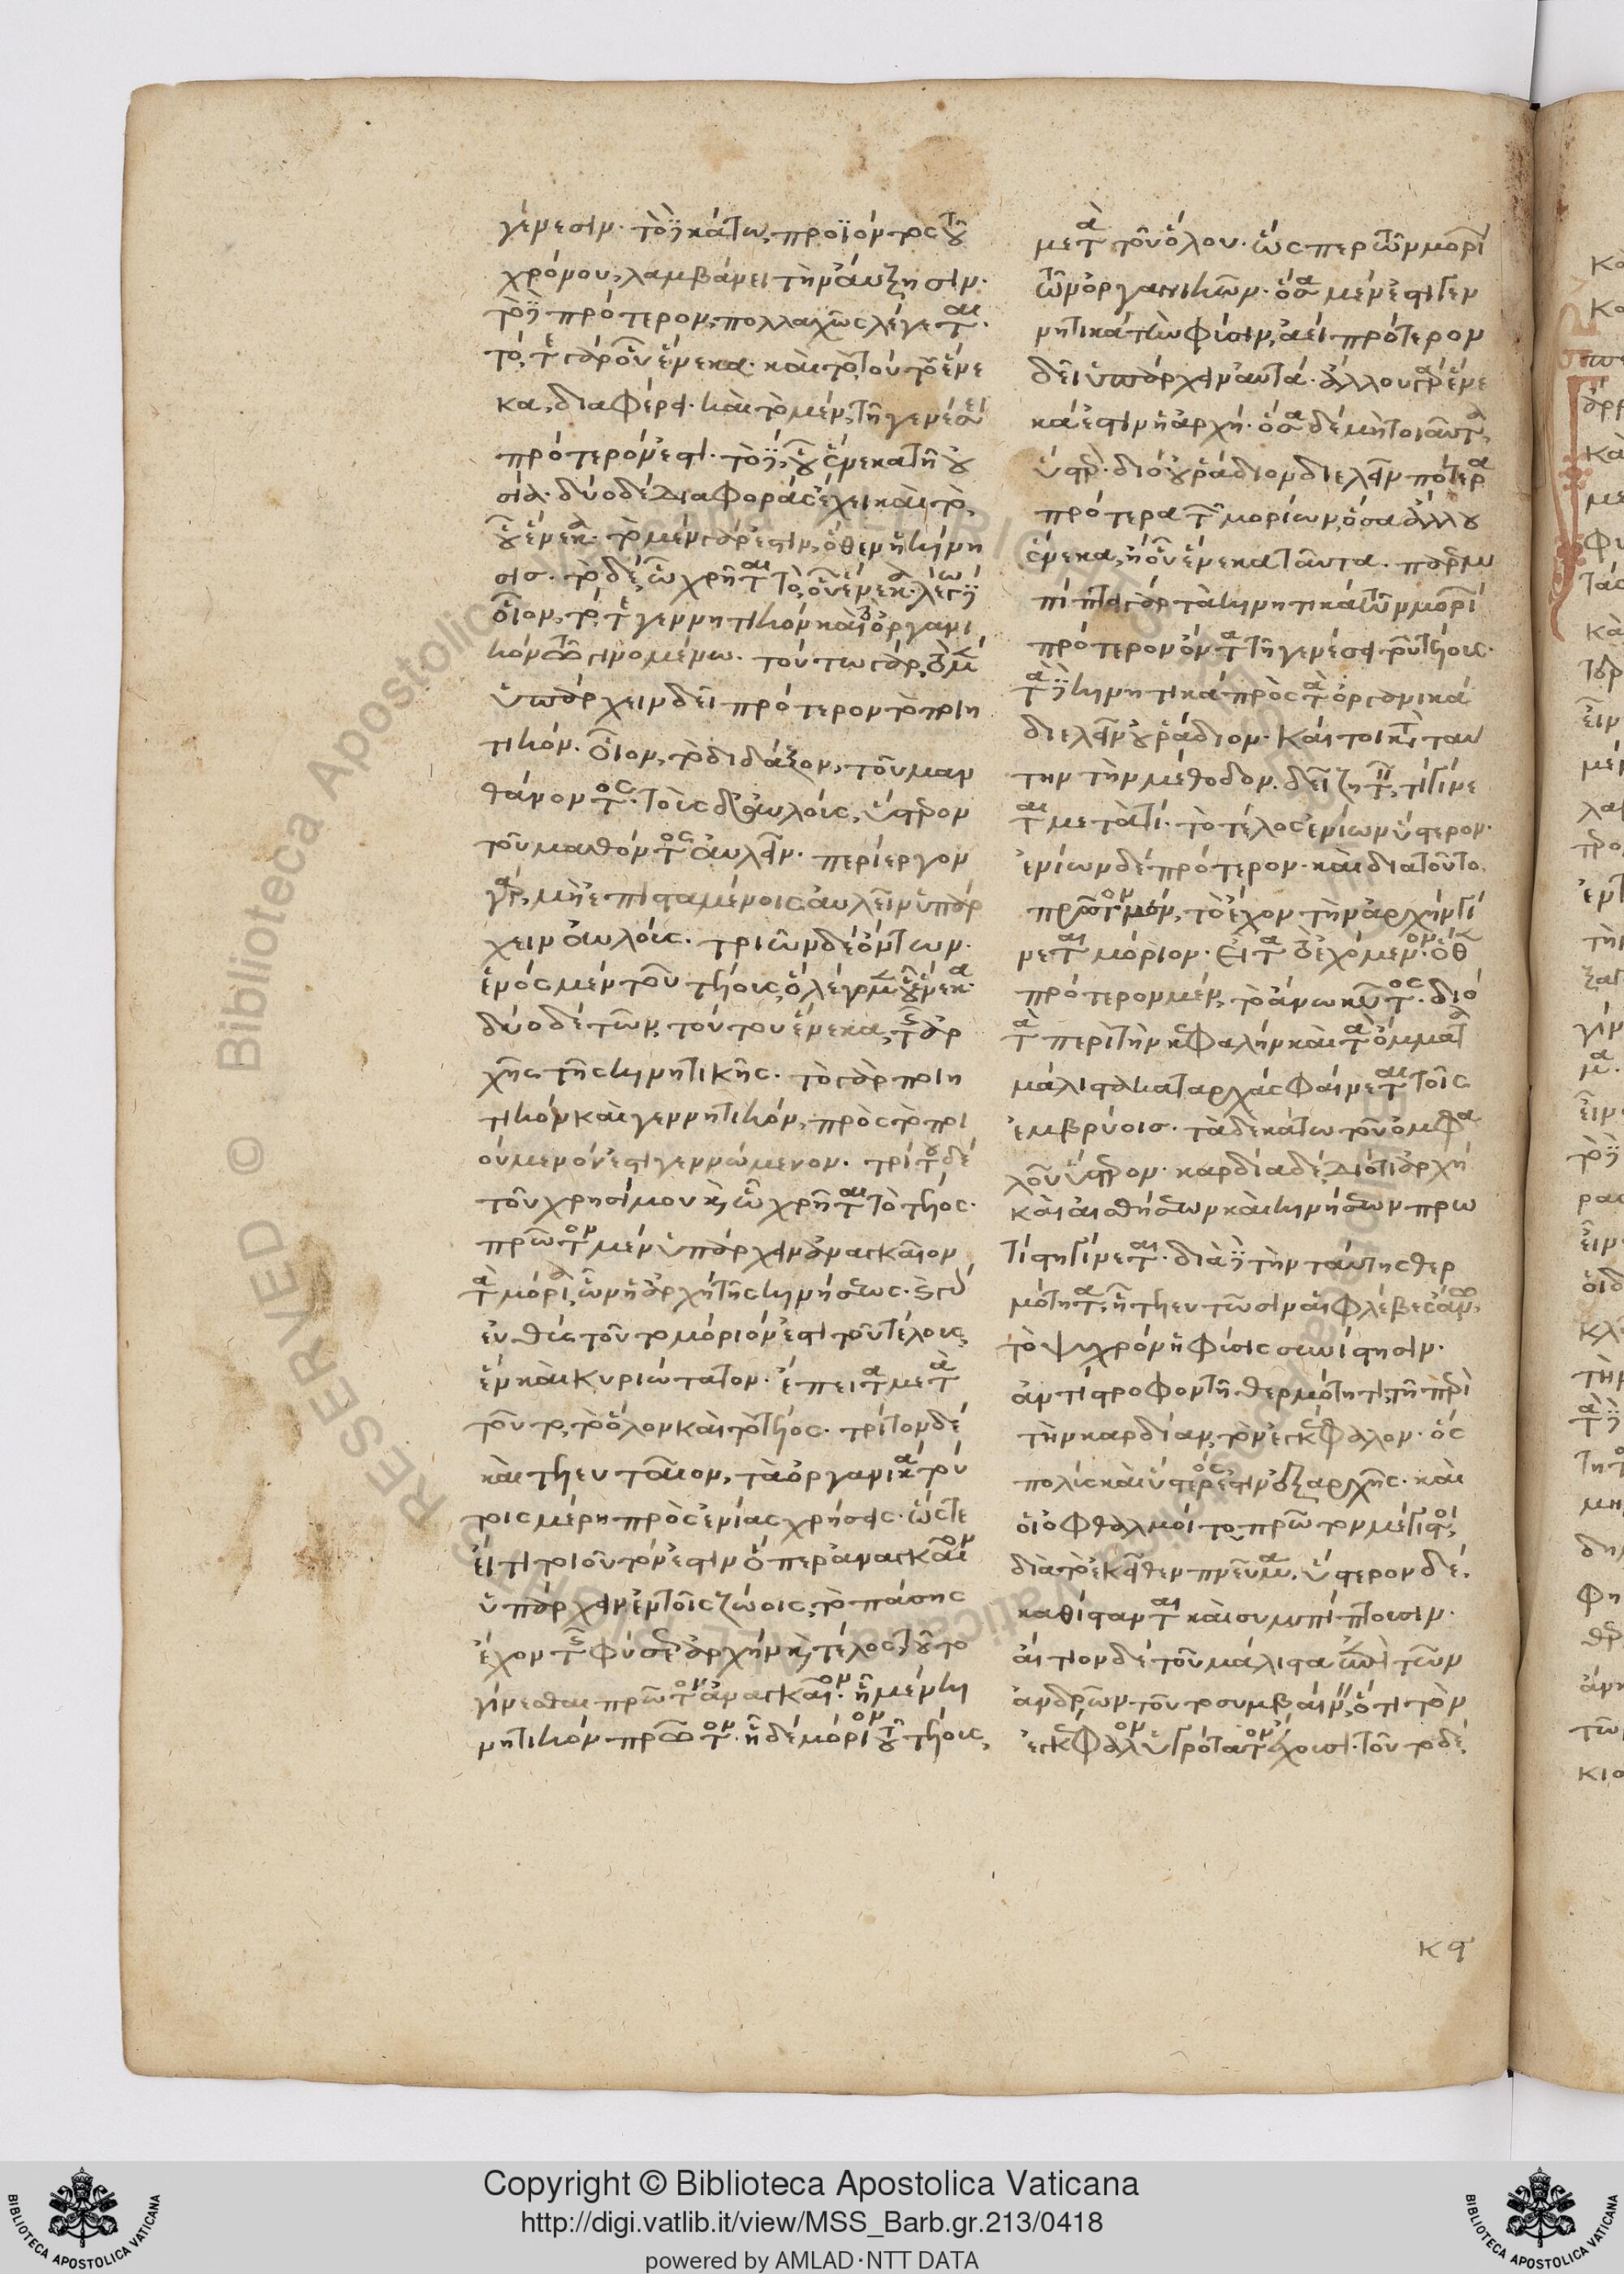 γένεσιν· τὸ δὲ κάτω, προϊόντος τοῦ
χρόνου, λαμβάνει τὴν αὔξησιν·
τὸ δὲ πρότερον, πολλαχῶς λέγεται·
τό, τε γὰρ οὗ ἕνεκα· καὶ τὸ τούτου ἕνε
κα, διαφέρει· καὶ τὸ μὲν, τῆ γενέσει
πρότερόν ἐστι· τὸ δὲ, οὗ ἕνεκα τῆ οὐ
σία· δύο δὲ διαφορὰς ἔχει καὶ τὸ,
οὗ ἕνεκα· τὸ μὲν γάρ ἐστιν, ὅθεν ἡ κίνη
σις· τὸ δὲ, ὧ χρῆται τὸ, οὗ ἕνεκα· λέγω δὲ
οἷον, τό, τε γεννητικὸν καὶ τὸ ὀργανι
κὸν τῶ γινομένω· τούτω γὰρ, τὸ μὲν
ὑπάρχειν δεῖ πρότερον τὸ ποιη
τικόν· οἷον, τὸ διδάξον, τοῦ μαν
θάνοντος· τοὺς δ' αὐλοὺς, ὕστερον
τοῦ μανθάνοντος αὐλεῖν· περίεργον
γὰρ, μὴ ἐπισταμένοις αὐλεῖν ὑπάρ
χειν αὐλούς· τριῶν δὲ ὄντων·
ἑνὸς μὲν τοῦ τέλους, ὃ λέγομεν οὗ ἕνεκα·
δύο δὲ τῶν, τούτου ἕνεκα, τῆς ἀρ
χῆς τῆς κινητικῆς· τὸ γὰρ ποιη
τικὸν καὶ γεννητικὸν, πρὸς τὸ ποι
ούμενόν ἐστι γεννώμενον· τρίτου δὲ
τοῦ χρησίμου καὶ ὧ χρῆται τὸ τέλος·
πρῶτον μὲν ὑπάρχειν ἀναγκαῖον
τὰ μόρια, ὧν ἡ ἀρχὴ τῆς κινήσεως· καὶ γὰρ
εὐθὺς τοῦτο μόριόν ἐστι τοῦ τέλους,
ἓν καὶ κυριώτατον· ἔπειτα μετὰ
τοῦτο, τὸ ὅλον καὶ τὸ τέλος· τρίτον δὲ
καὶ τελευταῖον, τὰ ὀργανικὰ τού
τοις μέρη πρὸς ἐνίας χρήσεις· ὥστε
εἴ τι τοιοῦτόν ἐστιν ὅπερ ἀναγκαῖον
ὑπάρχειν ἐν τοῖς ζώοις, τὸ πάσης
ἔχον τῆς φύσεως ἀρχὴν καὶ τέλος, τοῦτο
γίνεσθαι πρῶτον ἀναγκαῖον· ἧ μὲν κι
νητικὸν πρῶτον· ἧ δὲ μόριον τοῦ τέλους,
μετὰ τοῦ ὅλου· ὥσπερ τῶν μορί
τῶν ὀργανικῶν· ὅσα μέν ἐστι γεν
νητικὰ τὴν φύσιν, ἀεὶ πρότερον
δεῖ ὑπάρχειν αὐτά· ἄλλου γὰρ ἕνε
κά ἐστιν ἡ ἀρχή· ὅσα δὲ μὴ τοιαῦτα,
ὕστερον· διὸ οὐ ῥάδιον διελεῖν πότερα
πρότερα τῶν μορίων, ὅσα ἄλλου
ἕνεκα, ἢ οὗ ἕνεκα ταῦτα. παρεμ
πίπτει γὰρ τὰ κινητικὰ τῶν μορί
πρότερον ὄντα τῆ γενέσει τοῦ τέλους·
τὰ δὲ κινητικὰ πρὸς τὰ ὀργανικὰ
διελεῖν οὐ ῥάδιον· καίτοι κατὰ ταύ
την τὴν μέθοδον, δεῖ ζητεῖν, τί γίνε
ται μετὰ τί· τὸ τέλος ἐνίων ὕστερον·
ἐνίων δὲ πρότερον· καὶ διὰ τοῦτο
πρῶτον μὲν, τὸ ἔχον τὴν ἀρχὴν γί
νεται μόριον· εἶτα ἐχόμενον· ὅθεν
πρότερον μὲν, τὸ ἄνω κύτος· διὸ
τὰ περὶ τὴν κεφαλὴν καὶ τὰ ὄμματα
μάλιστα κατ' ἀρχὰς φαίνεται τοῖς
ἐμβρύοις· τὰ δὲ κάτω τοῦ ὀμφα
λοῦ ὕστερον· καρδία δὲ, διότι ἀρχὴ
καὶ αἰσθήσεων καὶ κινήσεων πρω
τίστη γίνεται· διὰ δὲ τὴν ταύτης θερ
μότητα, ἧ τελευτῶσιν αἱ φλέβες ἄνω,
τὸ ψυχρὸν ἡ φύσις συνίστησιν·
ἀντίστροφον τῆ θερμότητι, τῆ περὶ
τὴν καρδίαν, τὸν ἐγκέφαλον· ὃς
πολὺς καὶ ὕστερός ἐστιν ἐξ ἀρχῆς· καὶ
οἱ ὀφθαλμοὶ τὸ πρῶτον μέγιστοι,
διὰ τὸ ἐκεῖθεν πνεῦμα. ὕστερον δὲ,
καθίστανται καὶ συμπίπτουσιν·
αἴτιον δὲ τοῦ μάλιστα ἐπὶ τῶν
ἀνδρῶν τοῦτο συμβαίνειν, ὅτι τὸν
ἐγκέφαλον ὑγρότατον ἔχουσι· τοῦτο δὲ,